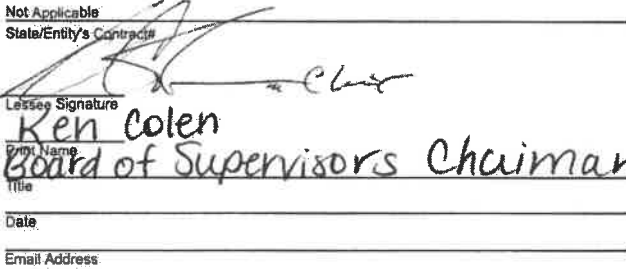 Not Applicable
State/Entity's Contract#
Chair
Lessee Signature
Ken Colen
Print Name
Board of Supervisors Chairman
Title
Date
Email Address